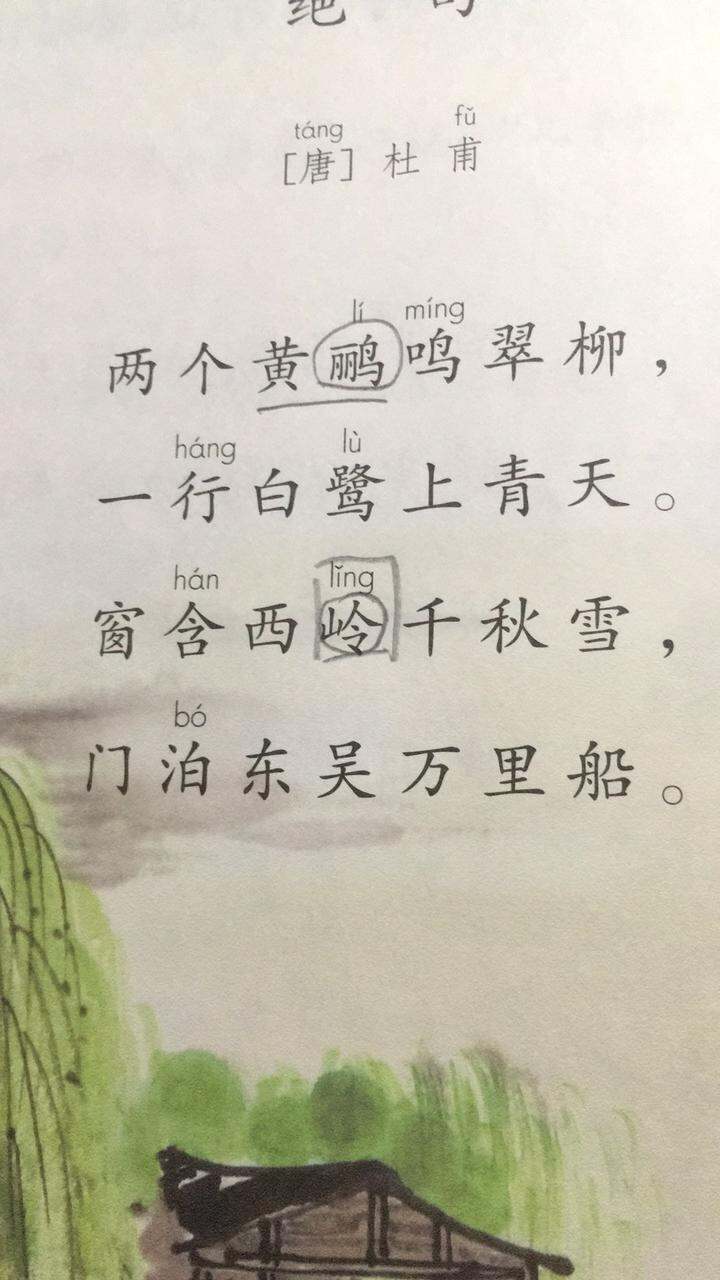 绝 句
táng fǔ
[唐] 杜 甫
lí míng
两个黄鹂鸣翠柳，
háng lù
一行白鹭上青天。
hán lǐng
窗含西岭千秋雪，
bó
门泊东吴万里船。